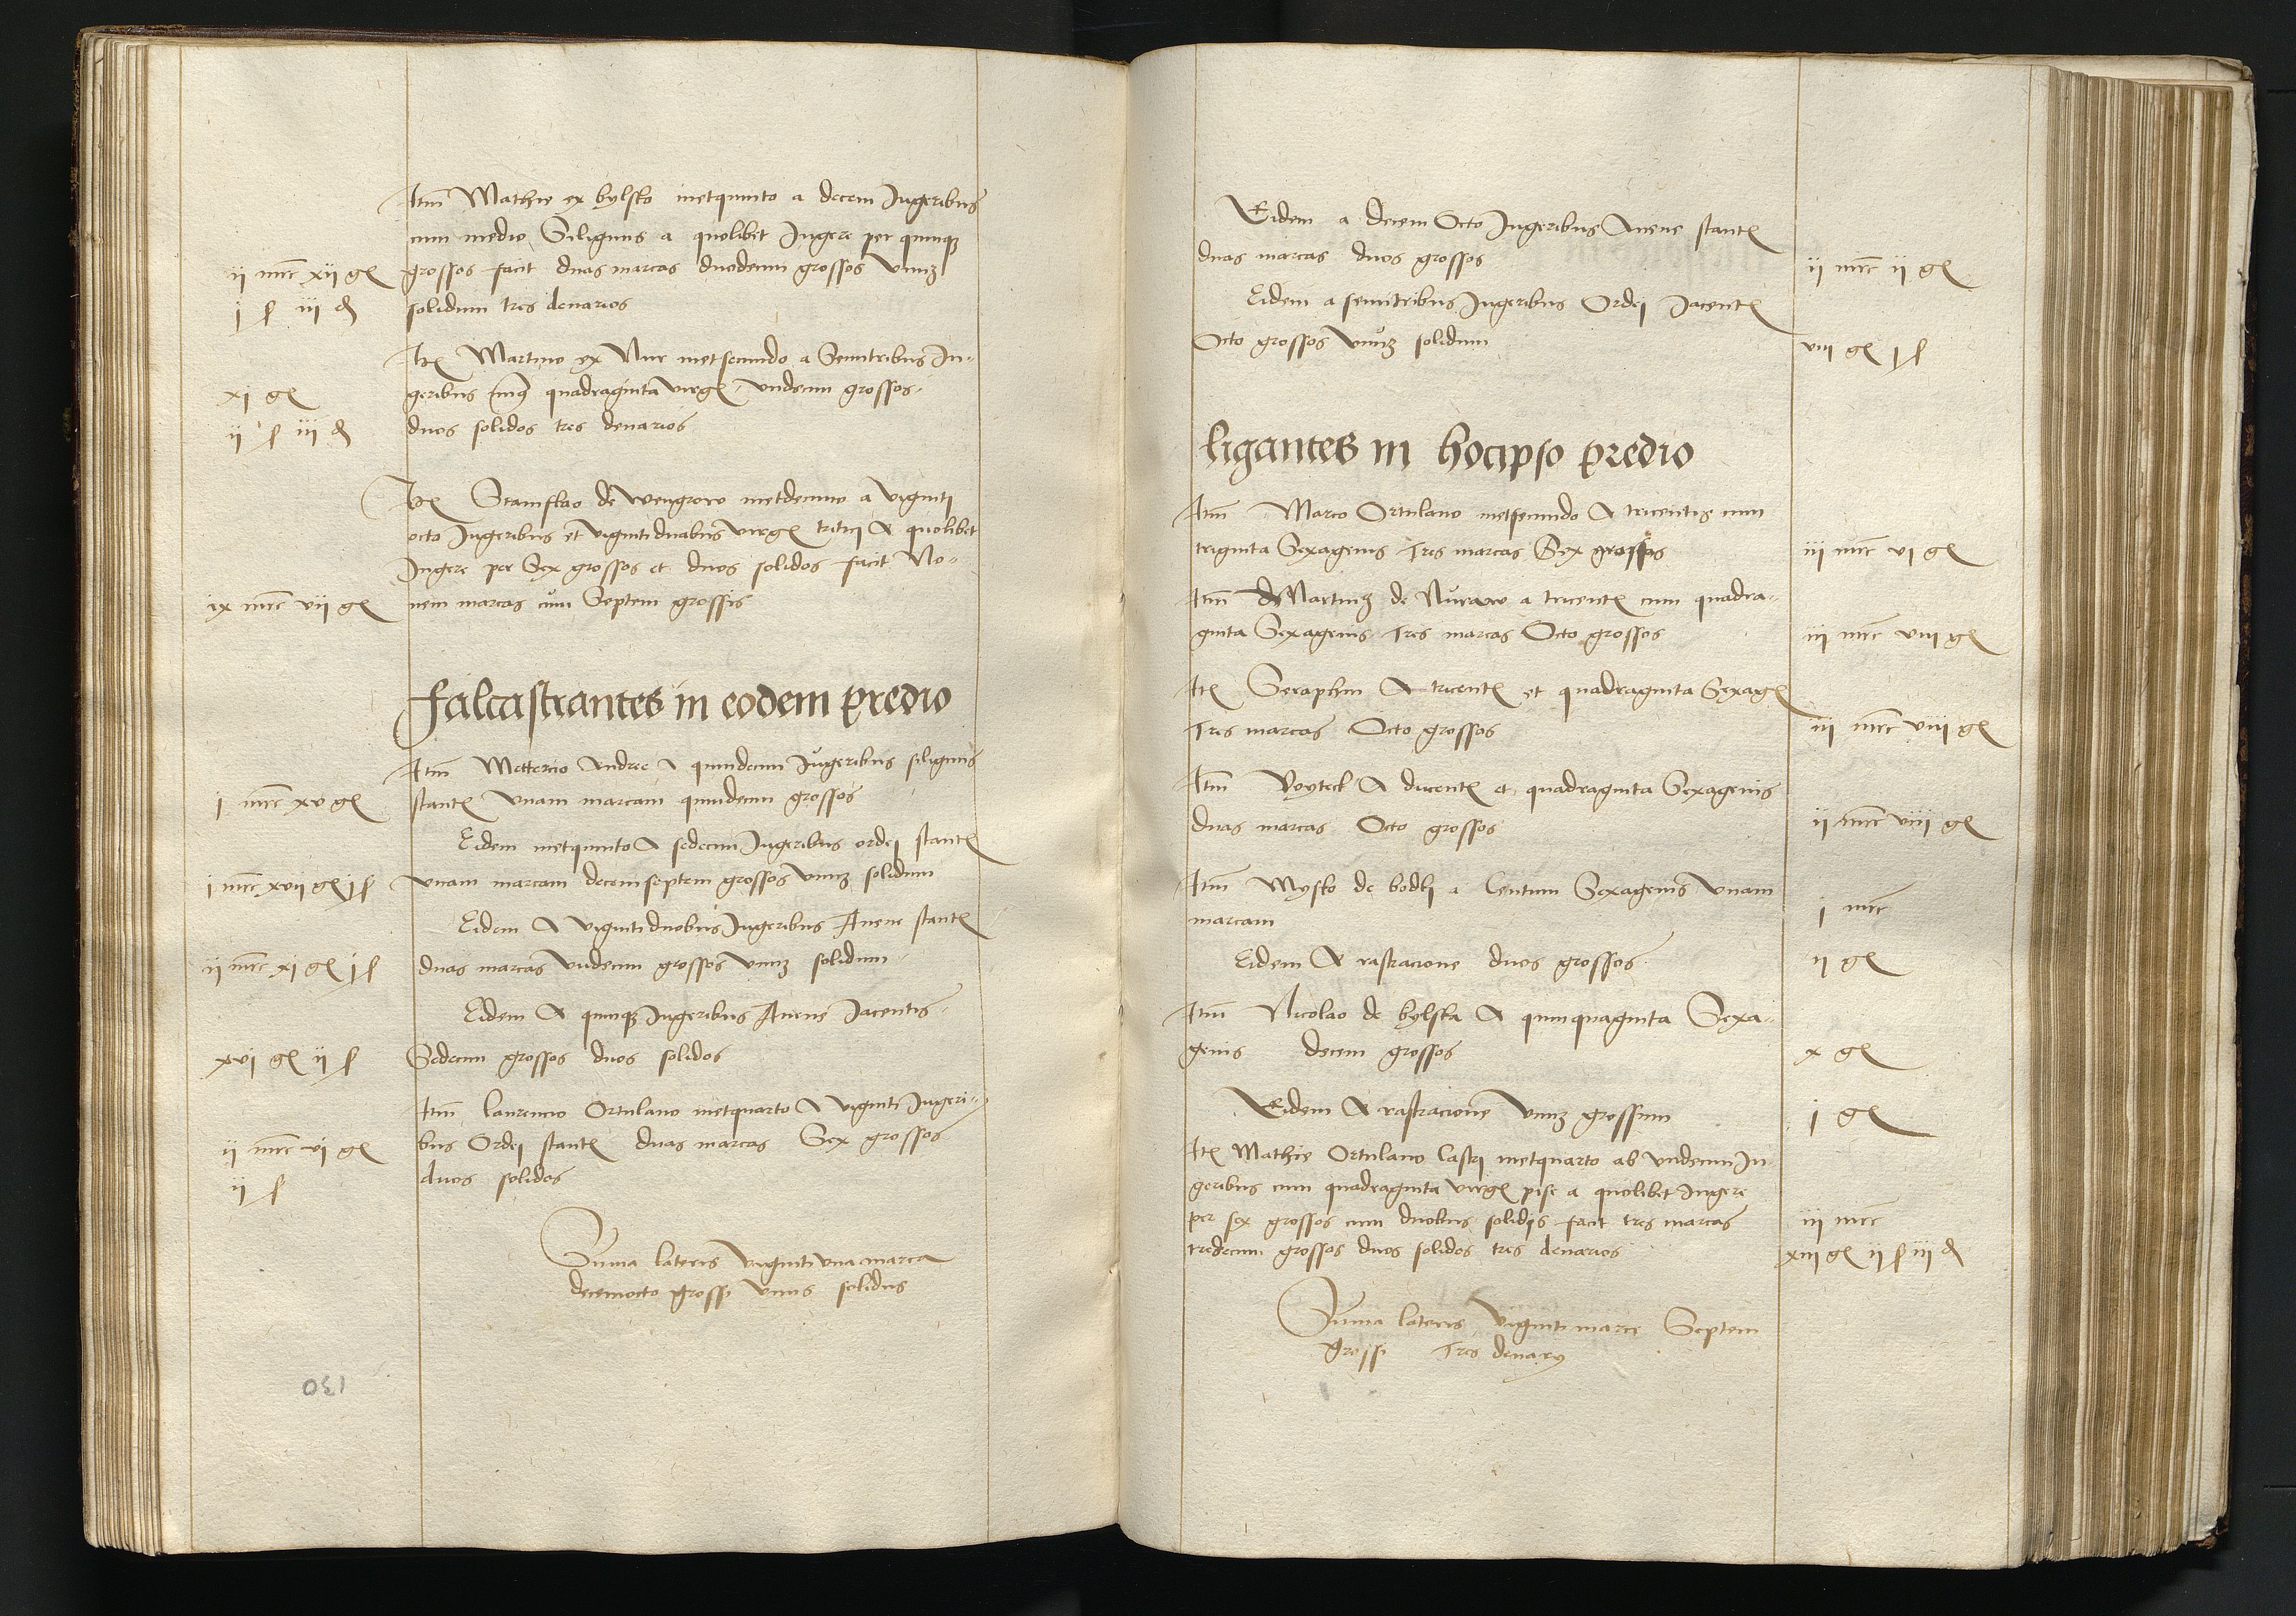 Itm Mathie ex bylsko metquinto a decem Iugeribus
cum medio Siliginis a quolibet Iugere per quinq
ii mrc xii gͬ grossos facit duas marcas duodecim grossos Vnuʒ
j ſ iii ₰ solidum tres denarios
Itͫ Martino ex Nur metsecundo a Semitribus Iu-
xj gͬ geribus quadraginta virgͬ Vndecim grossos
ii ſ iii ₰ duos solidos tres denarios
Itͫ Stanislao de Wengrow metdecimo a Viginti
octo Iugeribus et vigintiduabus virgͬ tritici A quolibet
Iugere per Sex grossos et duos solidos facit No-
ix mrc vii gͬ nem marcas cum Septem grossis
falcastrantes in eodem predio
Itm Mettercio Andree A quindecim Iugeribus siliginis
i mrc xv gͬ stantͬ Vnam marcam quindecim grossos
Eidem metquinto A sedecim Iugeribus ordej stantͬ
i mrc xvii gͬ j ſ vnam marcam decemseptem grossos vnuʒ solidum
Eidem A vigintiduobus Iugeribus Auene stantͬ
ii mrc xj gͬ j ſ duas marcas vndecim grossos vnuʒ solidum
Eidem A quinqʒ Iugeribus Auene Iacentis
xvj gͬ ii ſ Sedecim grossos duos solidos
Itm laurencio Ortulano metquarto A viginti Iugeri-
ii mrc vj gͬ bus Ordej stantͬ duas marcas Sex grossos
ii ſ duos solidos
Suma lateris viginti vna marca
decemocto grossi vnus solidus
130
Eidem a decem Octo Iugeribus Auene stantͬ
duas marcas duos grossos ii mrc ii gͬ
Eidem a semitribus Iugeribus Ordej Iacentͬ
Octo grossos vnuʒ solidum viii gͬ j ſ
ligantes in hocipso predio
Itm Marco Ortulano metsecundo A tricentis cum
triginta Sexagenis Tres marcas Sex grossos iii mrc vj gͬ
Itm Martinʒ de Nuraw a tricentͬ cum quadra-
ginta Sexagenis Tres marcas Octo grossos iii mrc viii gͬ
Itͫ Seraphin A tricentͬ et quadraginta Sexagͬ
Tres marcas Octo grossos iii mrc viii gͬ
Itm Voytek A ducentͬ et quadraginta Sexagenis
duas marcas Octo grossos ii mrc viii gͬ
Itm Mysko de bodkj a Centum Sexagenis vnam
marcam j mrc
Eidem A rastracione duos grossos ii gͬ
Itm Nicolao de bylska A quinquaginta Sexa-
genis decem grossos x gͬ
Eidem A rastracione vnuʒ grossum j gͬ
Itͫ Mathie Ortulano Castrj metquarto ab vndecim Iu-
geribus cum quadraginta virgͬ pise a quolibet Iugere
per sex grossos cum duobus solidis facit tres marcas iii mrc
tredecim grossos duos solidos tres denarios xiii gͬ ii ſ iii ₰
Suma lateris viginti marce Septem
grossi Tres denarij